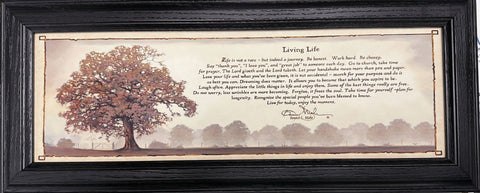 Living Life
Life is not a race - but indeed a journey. Be honest. Work hard. Be choosy.
Say "thank you", "I love you", and "great job" to someone each day. Go to church, take time
for prayer. The Lord giveth and the Lord taketh. Let your handshake mean more than pen and paper.
Love your life and what you've been given, it is not accidental - search for your purpose and do it
as best you can. Dreaming does matter. It allows you to become that which you aspire to be.
Laugh often. Appreciate the little things in life and enjoy them. Some of the best things really are free.
Do not worry, less wrinkles are more becoming. Forgive, it frees the soul. Take time for yourself - plan for
longevity. Recognize the special people you've been blessed to know.
Live for today, enjoy the moment.